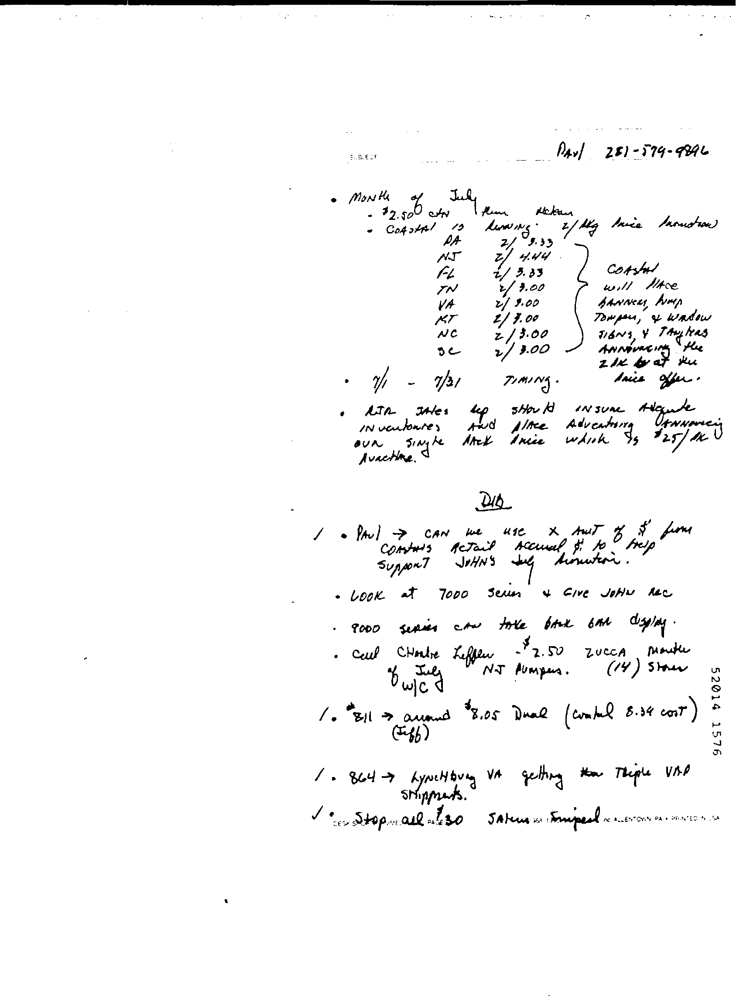 SUBJECT
PAul 281-579-9896
• MONTH of July
- $2.50 ctn
- COASTAL is running 2/pkg price promotion
PA 2/ 3.33
NJ 2/ 4.44
FL 2/ 3.33
TN 2/ 3.00
VA 2/ 3.00
KT 2/ 3.00
NC 2/ 3.00
SC 2/ 3.00
COASTAL
will place
BANNERS, pump
Toppers, & window
SIGNS, &
ANNOUNCING the
2 PK at the
price offer.
• 7/1 - 7/31 TIMING.
• RJR SALES rep should INSURE Adequate
INVENTORIES AND place Advertising ANNOUNCING
OUR SINGLE PACK price which is $25/PK
DID
/ • PAul → CAN we use X AMT of $ from
COASTALS RETAIL ACCRUAL $ to help
SUPPORT JOHN'S July promotion.
• LOOK at 7000 Series & Give JOHN REC
• 9000 series can take back bar display.
• Call Leffler - $2.50 ZUCCA month
of July NJ Pumpers. (14) Stores
W/C
/ • #811 → around $8.05 Dual (coastal 8.34 cost)
(Jeff)
/ • 864 → LYNCHburg VA getting Triple VAP
SHIPments.
✓ • Stop all $30 SALEM
ALLENTOWN PA • PRINTED IN USA
52014 1576